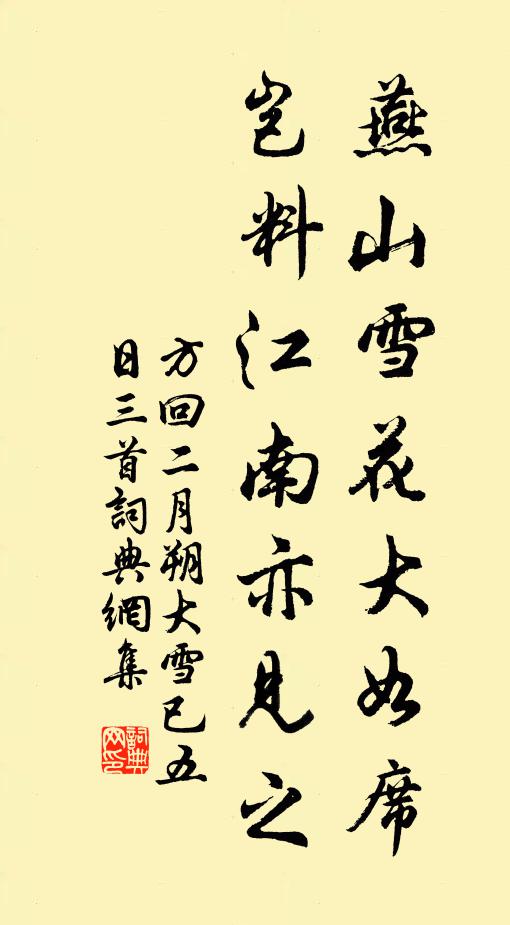 燕山雪花大如席
岂料江南亦見之
方回二月朔大雪已五
日三首詞典網集
詞典
网印